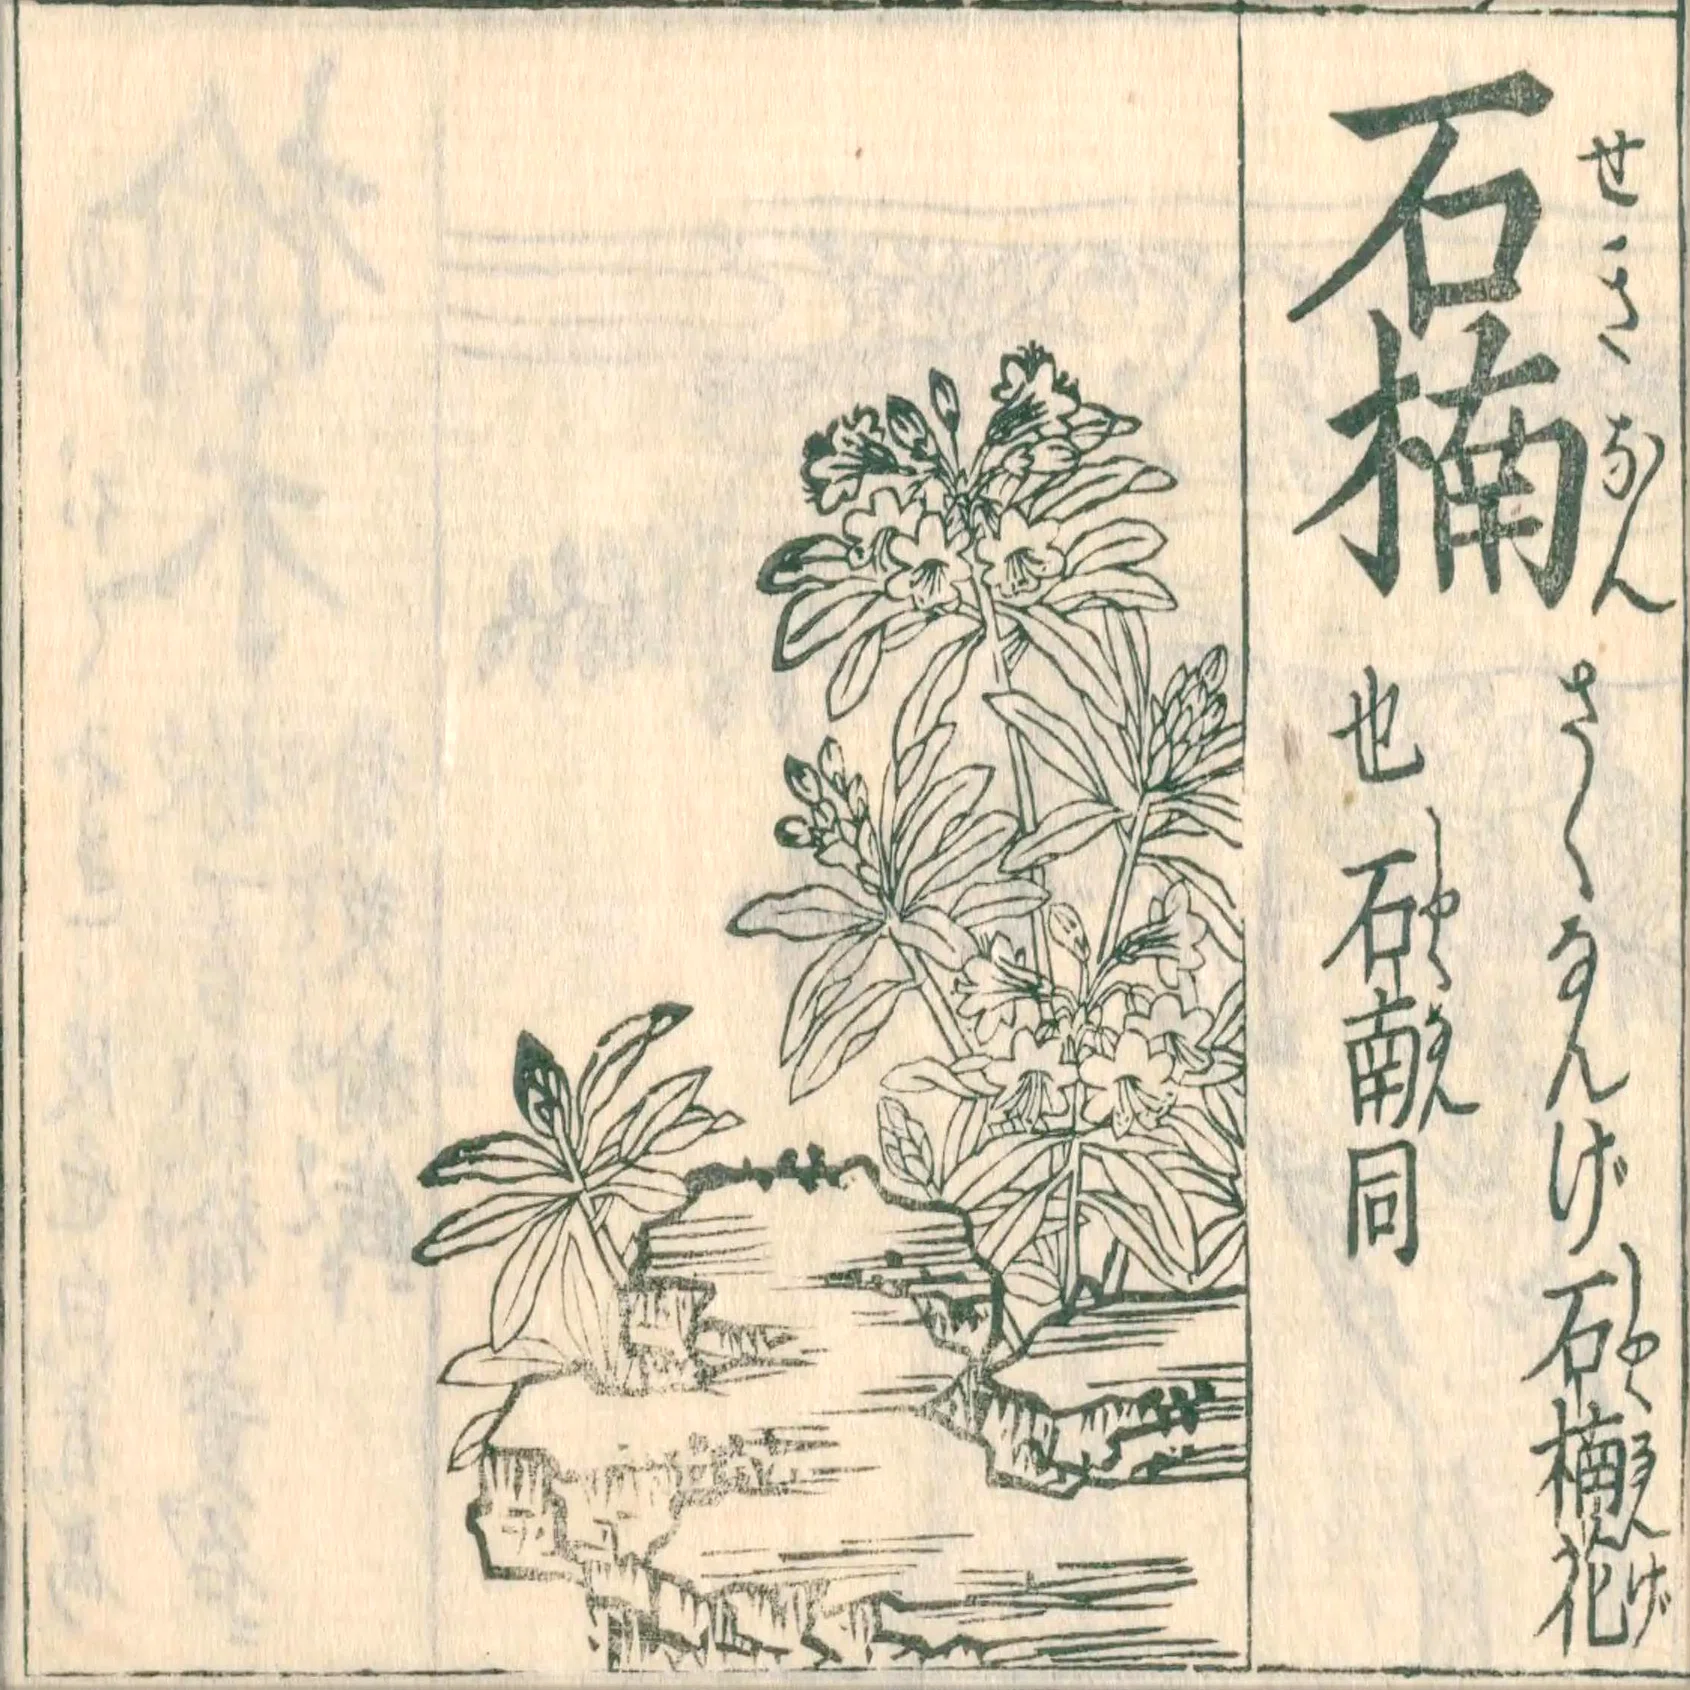 せきなん
石楠
しやくなんげ
さくなんげ石楠花
しやくなん
也石南同